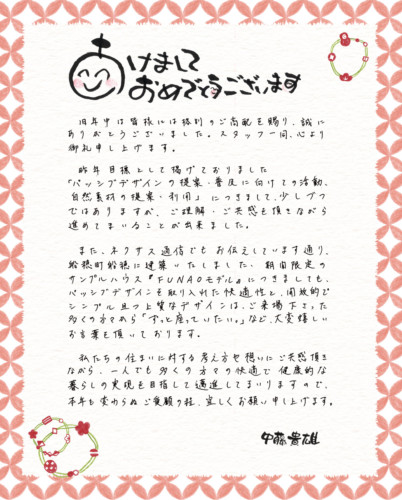 あけまして
おめでとうございます
旧年中は皆様には格別のご高配を賜り、誠に
ありがとうございました。スタッフ一同、心より
御礼申し上げます。
昨年目標として掲げておりました
「パッシブデザインの提案・普及に向けての活動、
自然素材の提案・利用」につきまして、少しづつ
ではありますが、ご理解・ご共感を頂きながら
進めてまいることが出来ました。
また、ネクサス通信でもお伝えしています通り、
船穂町船穂に建築いたしました、期間限定の
サンプルハウス『FUNAOモデル』につきましても、
パッシブデザインを取り入れた快適性と、開放的で
シンプル且つ上質なデザインは、ご来場下さった
多くの方々から「ずっと座っていたい。」など、大変嬉しい
お言葉を頂いております。
私たちの住まいに対する考え方や想いにご共感頂き
ながら、一人でも多くの方々の快適で健康的な
暮らしの実現を目指して邁進してまいりますので、
本年も変わらぬご愛顧の程、宜しくお願い申し上げます。
伊藤貴雄